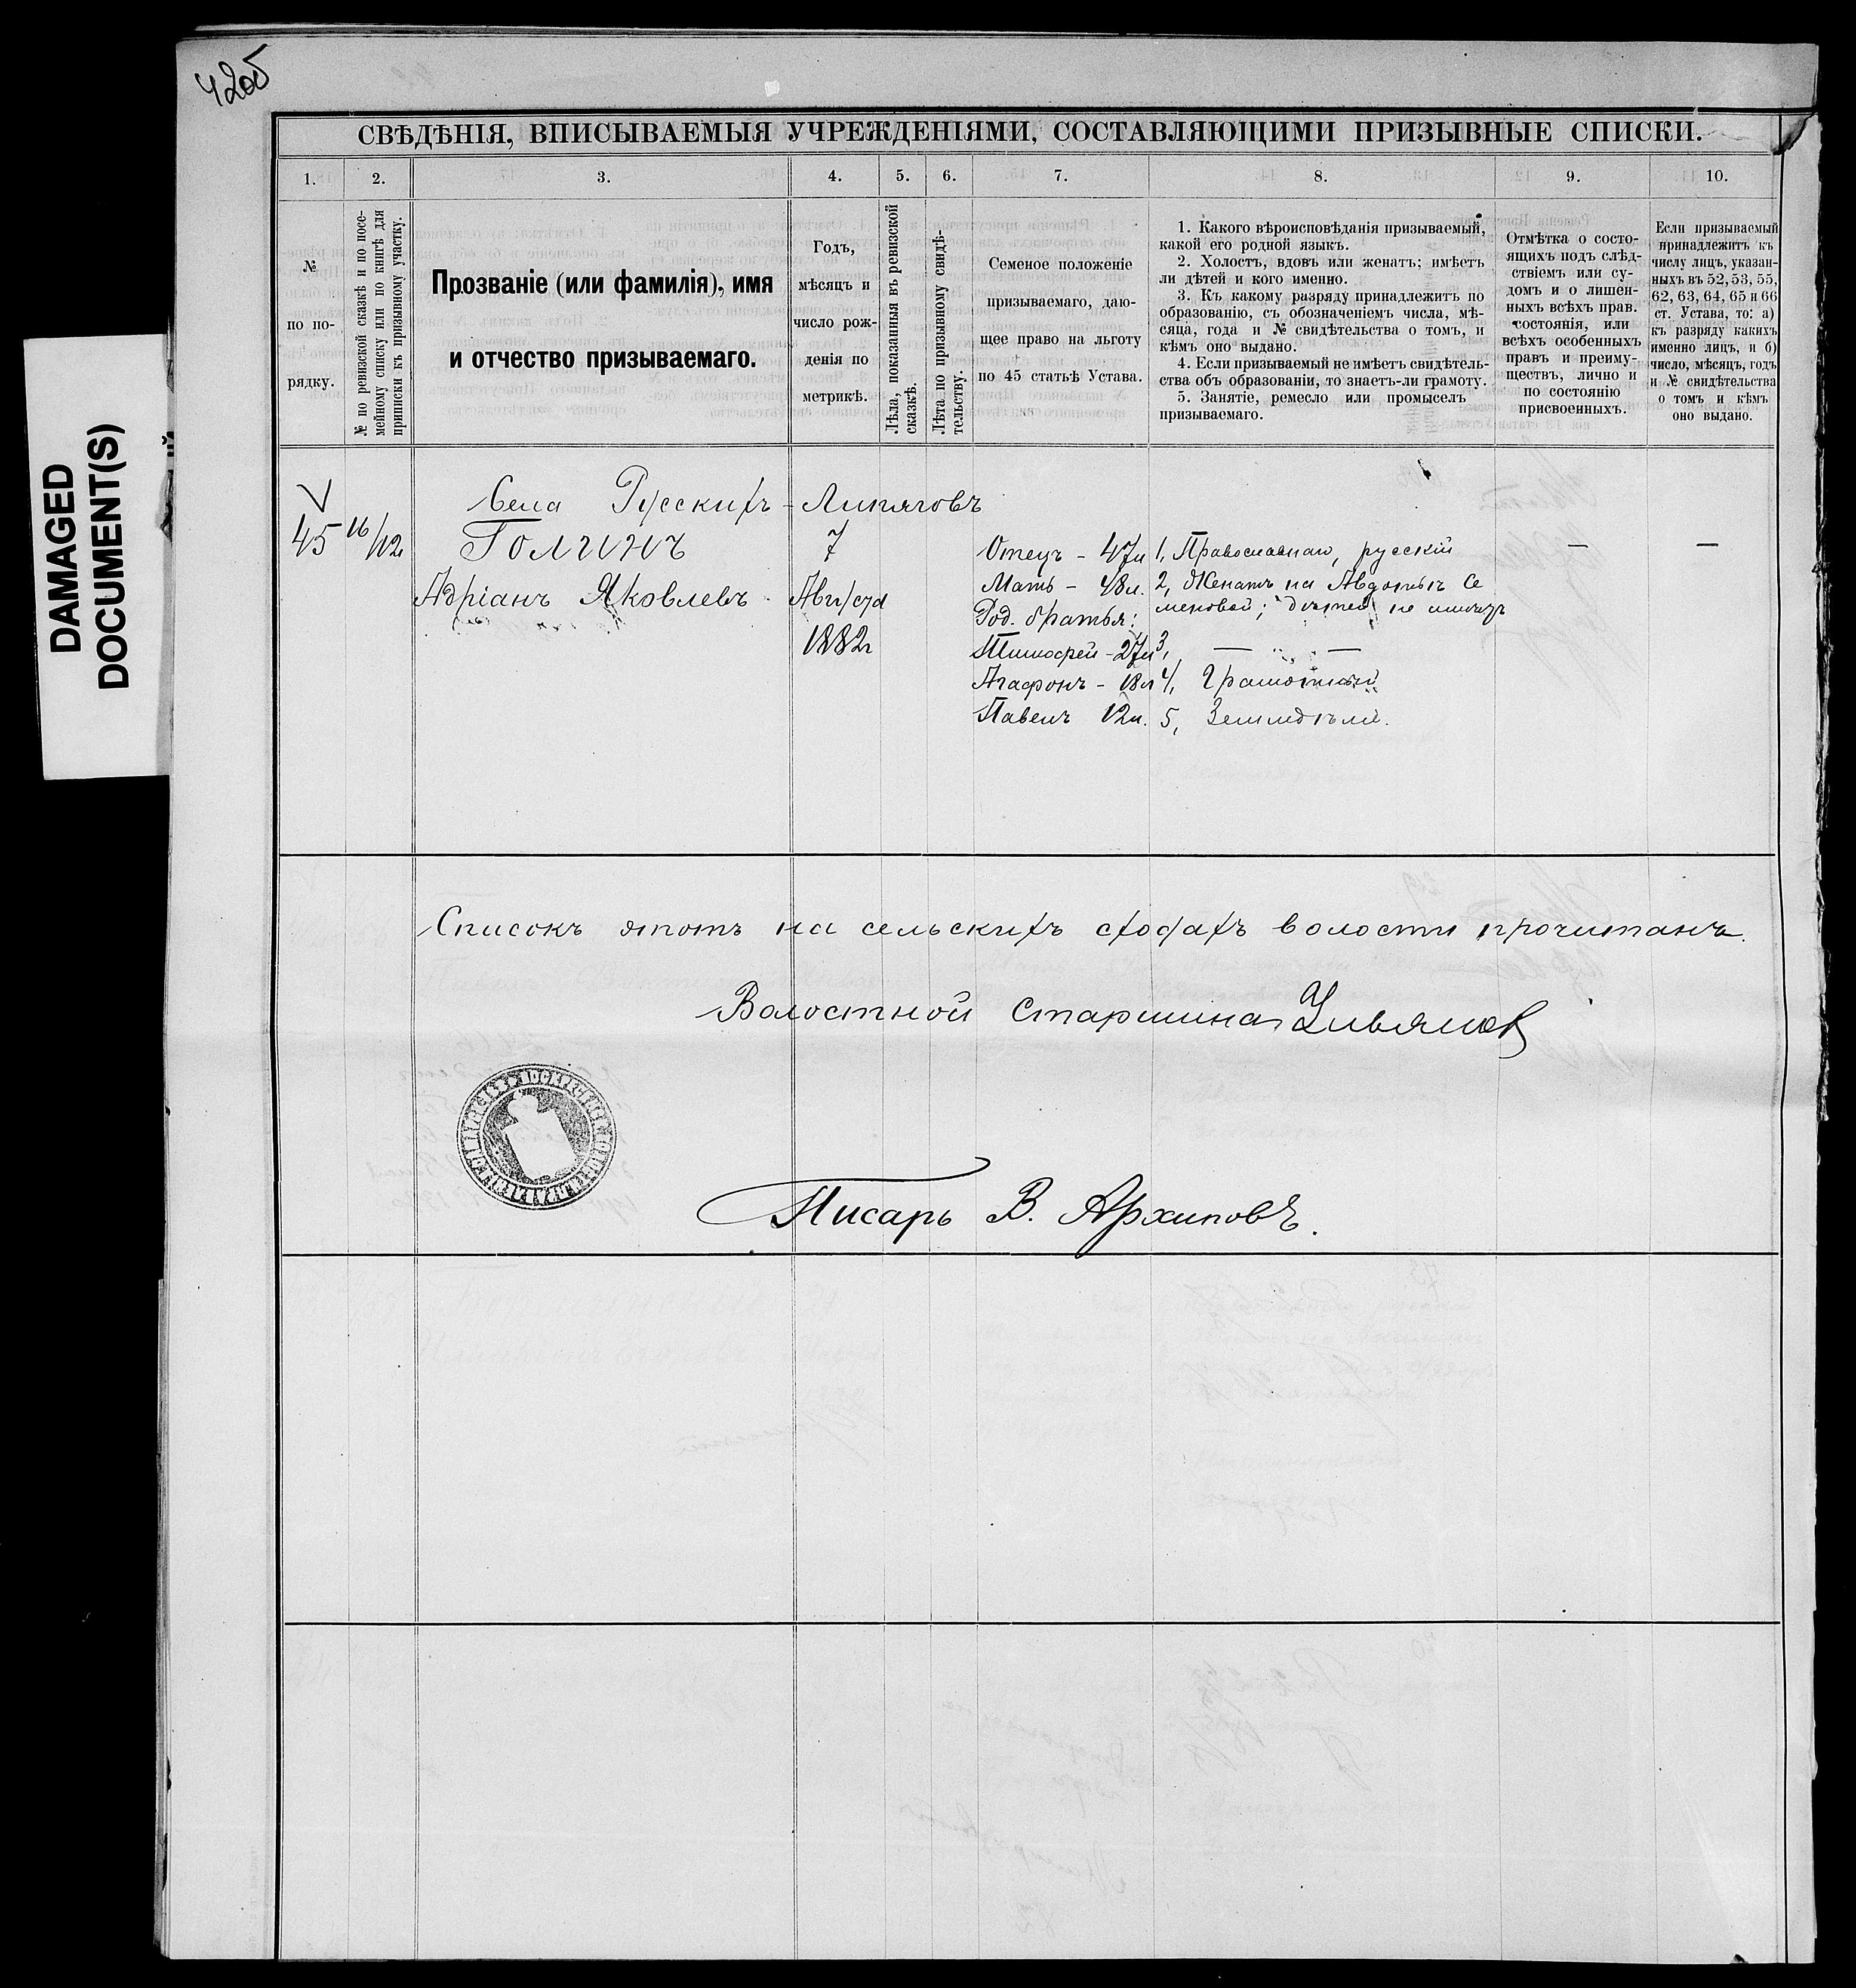 42об
СВѢДѢНІЯ, ВПИСЫВАЕМЫЯ УЧРЕЖДЕНІЯМИ, СОСТАВЛЯЮЩИМИ ПРИЗЫВНЫЕ СПИСКИ.
1. 2. 3. 4. 5. 6. 7. 8. 9. 10.
№
по по-
рядку.
№ по ревизской сказкѣ и по посе-
мейному списку или по книгѣ для
приписки къ призывному участку.
Прозваніе (или фамилія), имя
и отчество призываемаго.
Годъ,
мѣсяцъ и
число рож-
денія по
метрикѣ.
Лѣла, показанныя въ ревизской
сказкѣ.
Лѣта по призывному свидѣ-
тельству.
Семеное положеніе
призываемаго, даю-
щее право на льготу
по 45 статьѣ Устава.
1. Какого вѣроисповѣданія призываемый,
какой его родной языкъ.
2. Холостъ, вдовъ или женатъ; имѣетъ
ли дѣтей и кого именно.
3. Къ какому разряду принадлежитъ по
образованію, съ обозначеніемъ числа, мѣ-
сяца, года и № свидѣтельства о томъ, и
кѣмъ оно выдано.
4. Если призываемый не имѣетъ свидѣтель-
ства объ образованіи, то знаетъ-ли грамоту.
5. Занятіе, ремесло или промыселъ
призываемаго.
Отмѣтка о состо-
ящихъ подъ слѣд-
ствіемъ или су-
домъ и о лишен-
ныхъ всѣхъ прав.
состоянія, или
всѣхъ особенныхъ
правъ и преиму-
ществъ, лично и
по состоянію
присвоенныхъ.
Если призываемый
принадлежитъ къ
числу лицъ, указан-
ныхъ въ 52, 53, 55,
62, 63, 64, 65 и 66
ст. Устава, то: а)
къ разряду какихъ
именно лицъ, и б)
число, мѣсяцъ, годъ
и № свидѣтельства
о томъ и кѣмъ
оно выдано.
Села Русскихъ-Липяговъ
45 16/12
Голинъ
Адріанъ Яковлевъ
7
Августа
1882г
Отецъ - 47л
Мать - 48л.
Род. братья:
Тимофей - 27л
Агафонъ - 18л
Павелъ 12л.
1, Православнаго, русскій
2, Женатъ на Авдотьѣ Се
меновой; дѣтей не имѣетъ
3, — —
4, Грамотный
5, Земледѣлiе.
—
—
Списокъ этотъ на сельскихъ сходахъ волости прочитанъ.
Волостной Старшина Ульянов
Писарь В. Архиповъ.
DAMAGED
DOCUMENT(S)